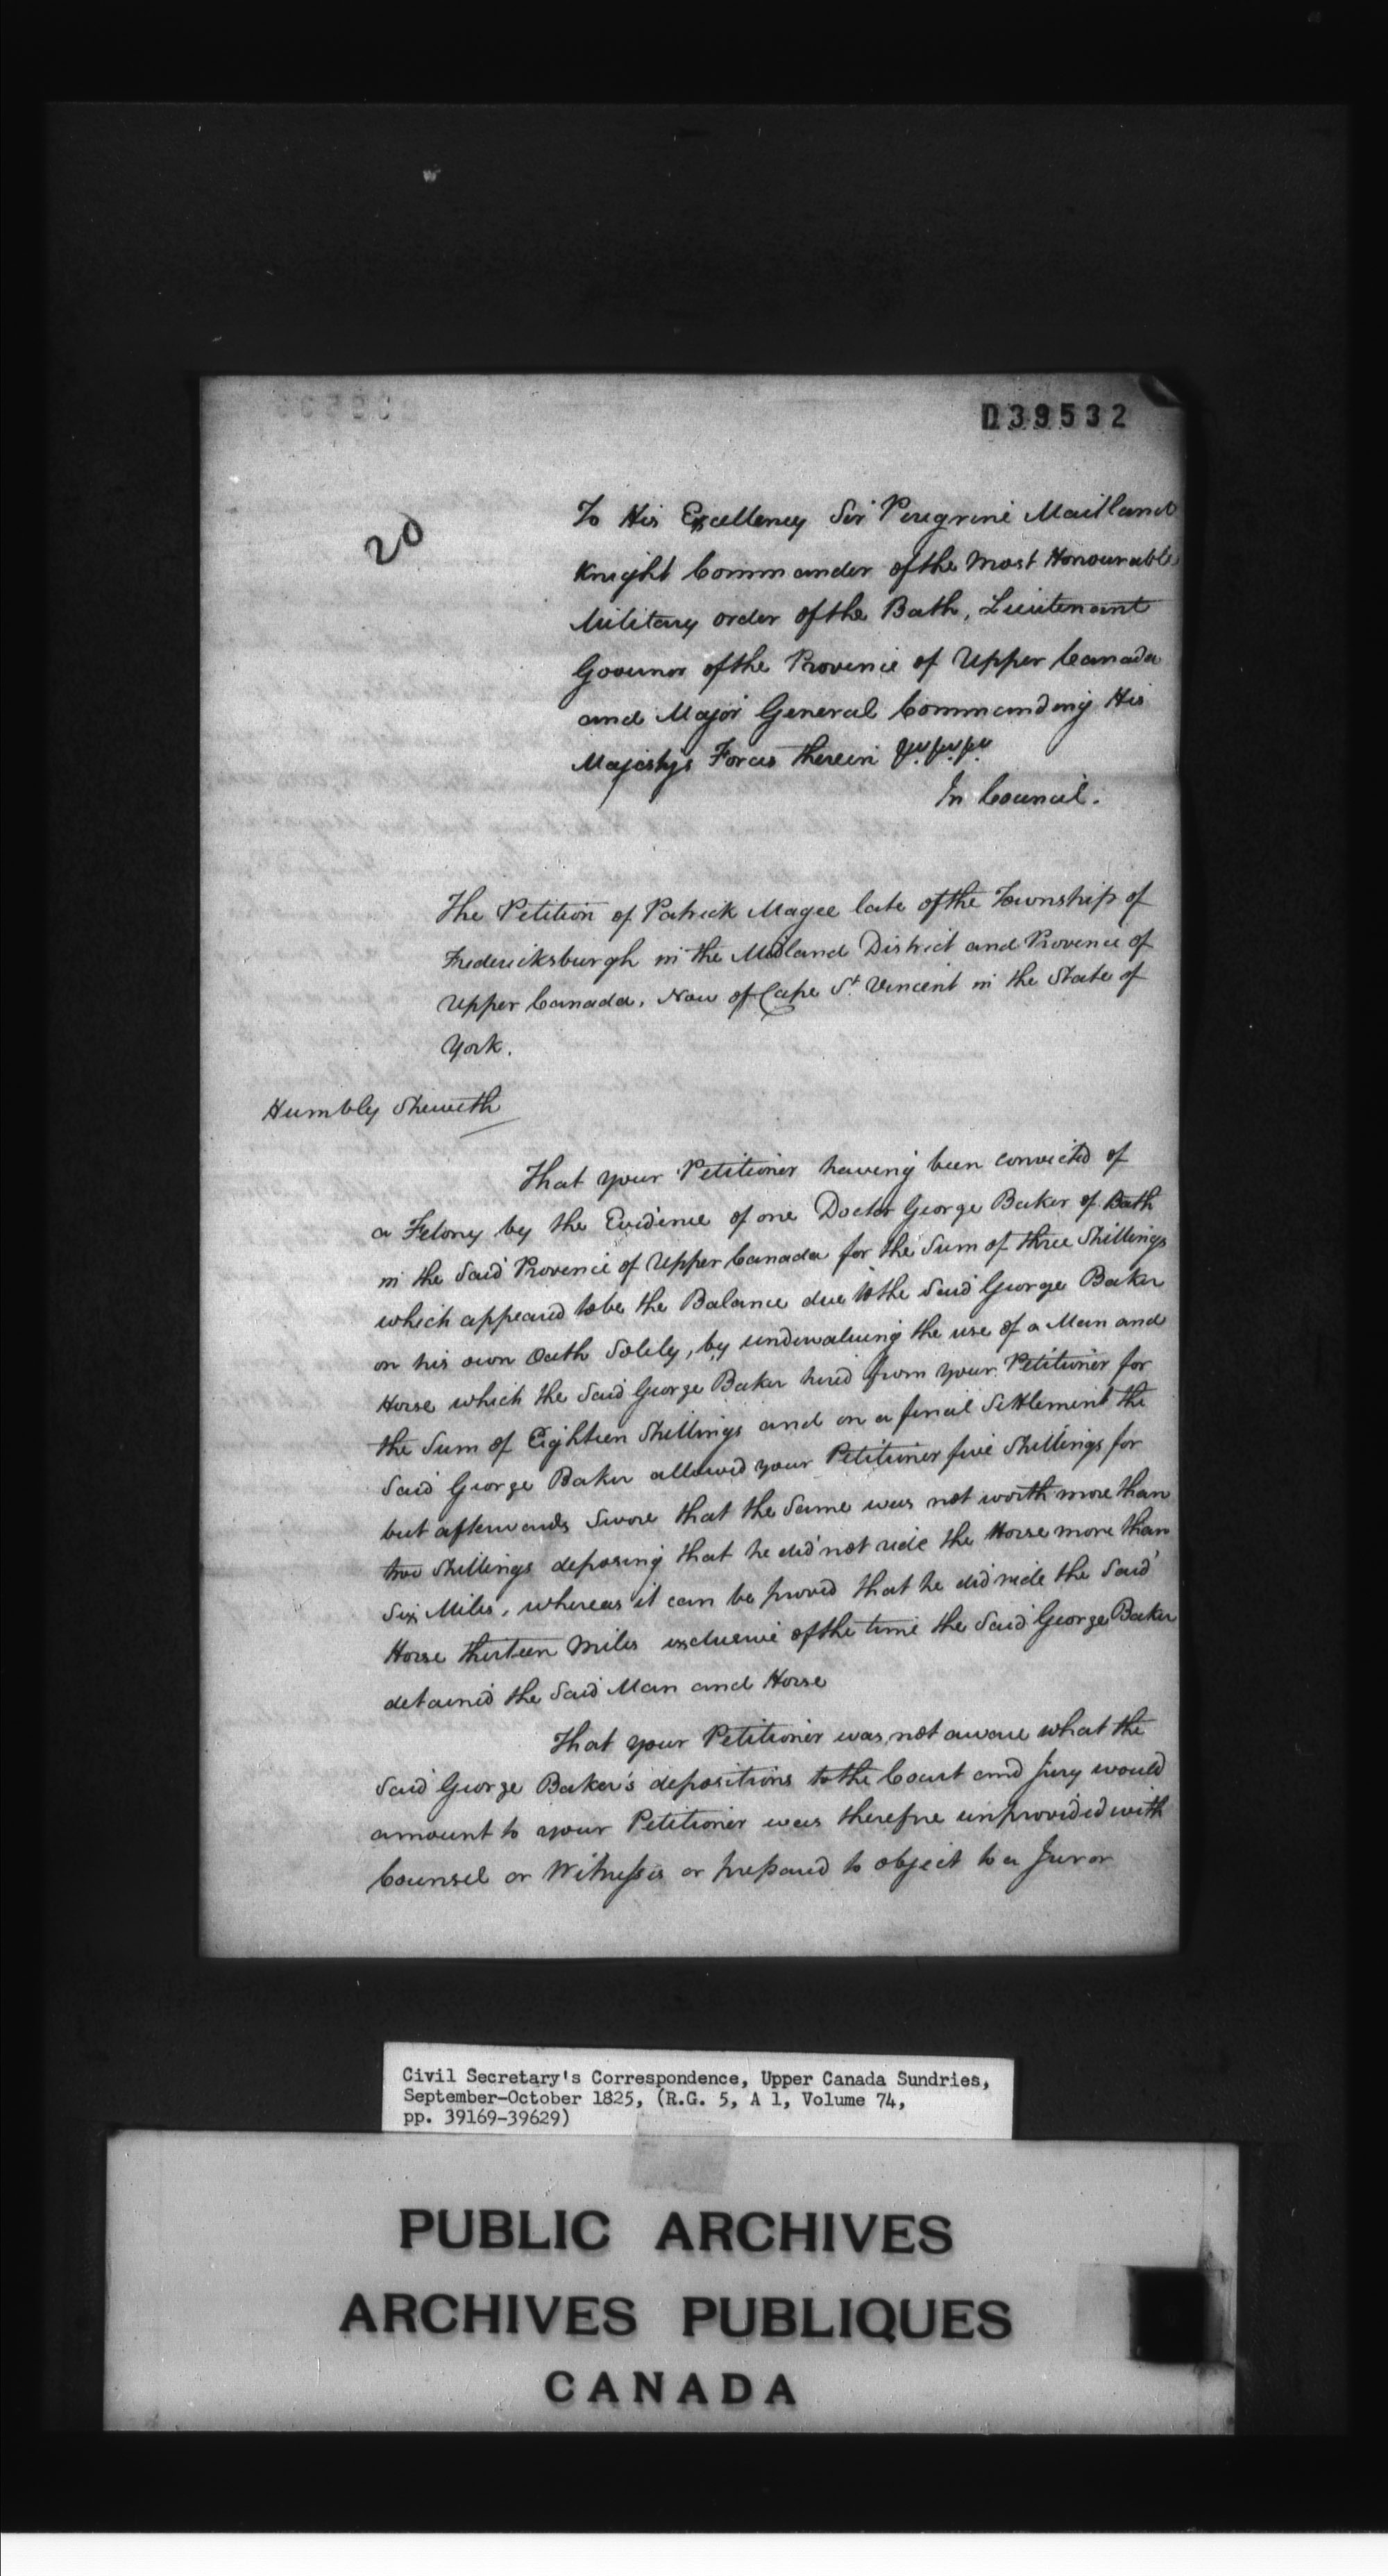 D39532
20
To His Excellency Sir Peregrine Maitland
Knight Commander of the Most Honourable
Military order of the Bath, Lieutenant
Govenor of the Province of Upper Canada
and Major General Commanding His
Majestys Forces therein &c. &c. &c.
In Council.
The Petition of Patrick Magee late of the Township of
Fredericksburgh in the Midland District and Province of
Upper Canada. Now of Cape St. Vincent in the State of
York.
Humbly Sheweth
That your Petitioner having been convicted of
a Felony by the Evidence of one Doctor George Baker of Bath
in the Said Province of Upper Canada for the Sum of three Shillings
which appeared to be the Balance due to the Said George Baker
on his own Oath Solely, by undervaluing the use of a Man and
Horse which the Said George Baker hired from your Petitioner for
the Sum of Eighteen Shillings and on a final Settlement the
Said George Baker allowed your Petitioner five Shillings for
but afterwards Swore that the Same was not worth more than
two Shillings deposing that he did not ride the Horse more than
Six Miles, whereas it can be proved that he did ride the Said
Horse thirteen Miles exclusive of the time the Said George Baker
detained the Said Man and Horse
That your Petitioner was not aware what the
Said George Baker's depositions to the Court and Jury would
amount to your Petitioner was therefore unprovided with
Counsel or Witnesses or prepared to object to a Juror
Civil Secretary's Correspondence, Upper Canada Sundries,
September-October 1825, (R.G. 5, A 1, Volume 74,
pp. 39169-39629)
PUBLIC ARCHIVES
ARCHIVES PUBLIQUES
CANADA